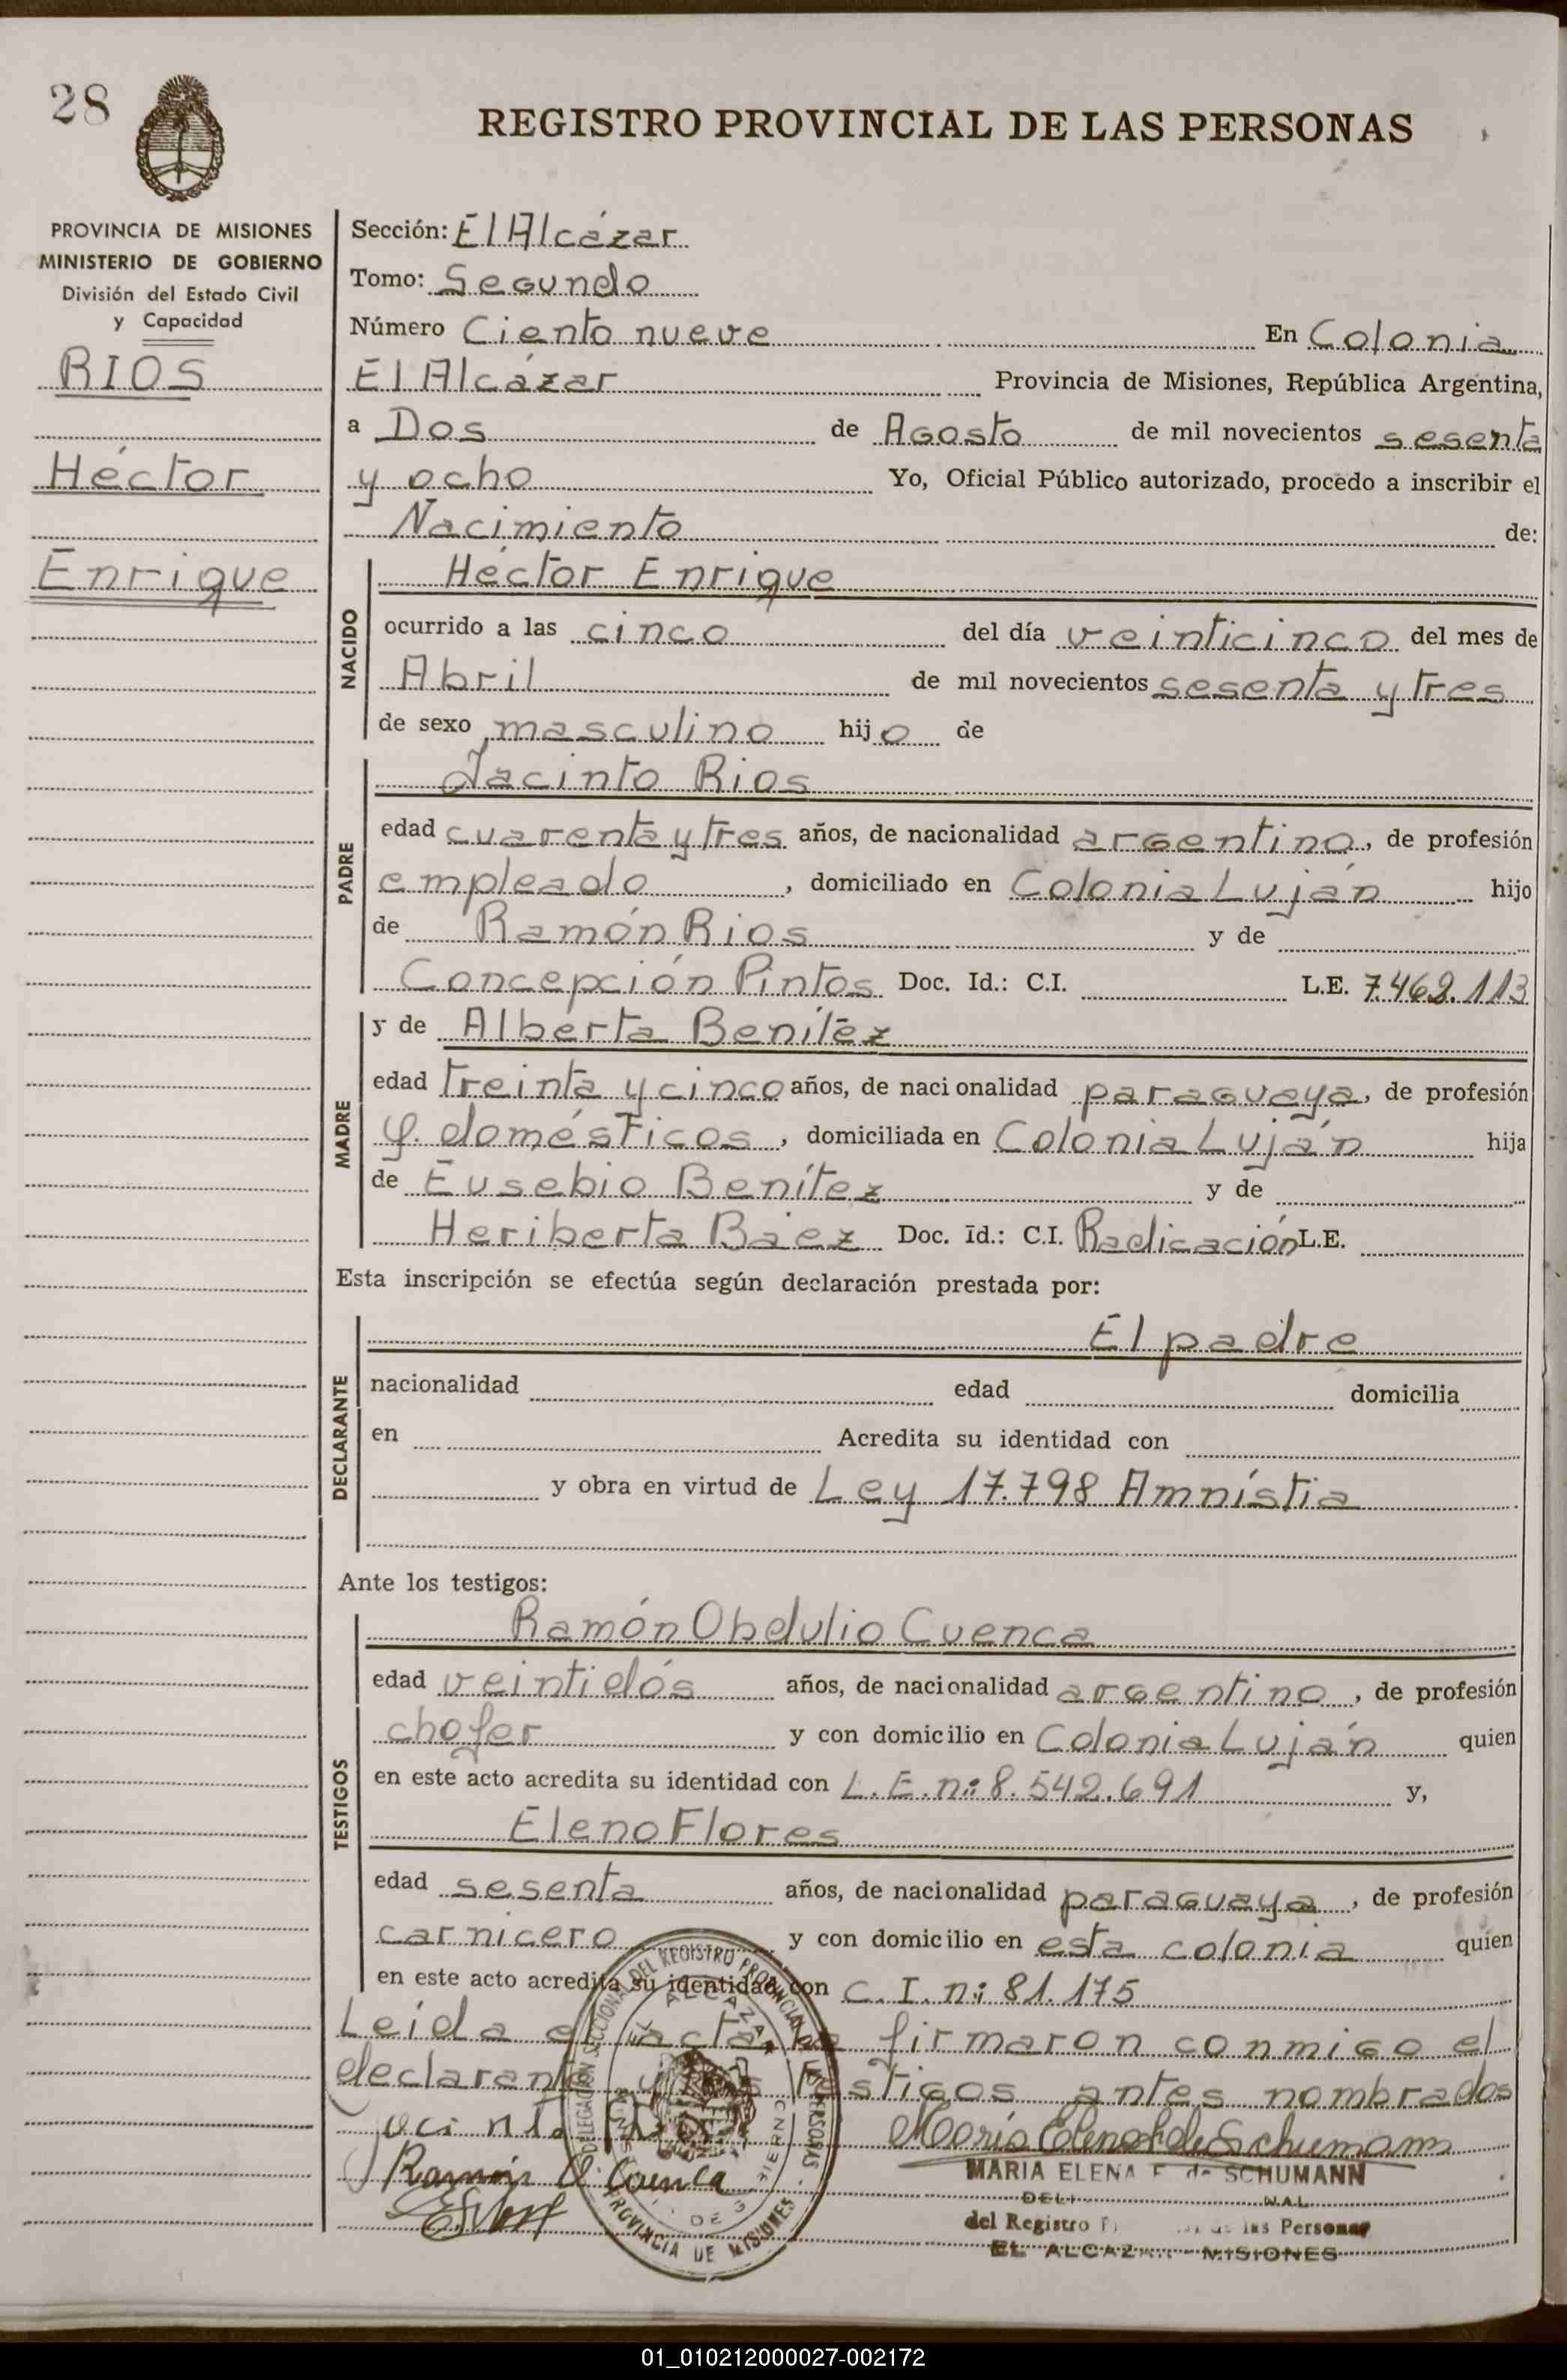 28
REGISTRO PROVINCIAL DE LAS PERSONAS
PROVINCIA DE MISIONES
MINISTERIO DE GOBIERNO
División del Estado Civil
y Capacidad
RIOS
Héctor
Enrique
Sección: El Alcázar
Tomo: Segundo
Número Ciento nueve En Colonia
El Alcázar Provincia de Misiones, República Argentina,
a Dos de Agosto de mil novecientos sesenta
y ocho Yo, Oficial Público autorizado, procedo a inscribir el
Nacimiento de:
NACIDO
Héctor Enrique
ocurrido a las cinco del día veinticinco del mes de
Abril de mil novecientos sesenta y tres
de sexo masculino hijo de
PADRE
Jacinto Rios
edad cuarenta y tres años, de nacionalidad argentino, de profesión
empleado, domiciliado en Colonia Luján hijo
de Ramón Rios y de
Concepción Pintos Doc. Id.: C.I. L.E. 7.469.113
MADRE
y de Alberta Benítez
edad treinta y cinco años, de nacionalidad paraguaya, de profesión
Q. domésticos, domiciliada en Colonia Luján hija
de Eusebio Benítez y de
Heriberta Báez Doc. Id.: C.I. Radicación L.E.
Esta inscripción se efectúa según declaración prestada por:
DECLARANTE
El padre
nacionalidad edad domicilia
en Acredita su identidad con
y obra en virtud de Ley 17.798 Amnístia
Ante los testigos:
TESTIGOS
Ramón Obdulio Cuenca
edad veintidós años, de nacionalidad argentino, de profesión
chofer y con domicilio en Colonia Luján quien
en este acto acredita su identidad con L.E.n: 8.542.691 y,
Eleno Flores
edad sesenta años, de nacionalidad paraguaya, de profesión
carnicero y con domicilio en esta colonia quien
en este acto acredita su identidad con C.I.n: 81.175
Leída el acta la firmaron conmigo el
declarante y los testigos antes nombrados
Jacinto Rios
Ramón O. Cuenca
María Elena F. de Schumann
MARIA ELENA F. de SCHUMANN
del Registro de las Personas
EL ALCAZAR - MISIONES
DELEGACIÓN SECCIONAL DEL REGISTRO PROVINCIAL DE LAS PERSONAS
EL ALCAZAR
PROVINCIA DE MISIONES
01_010212000027-002172